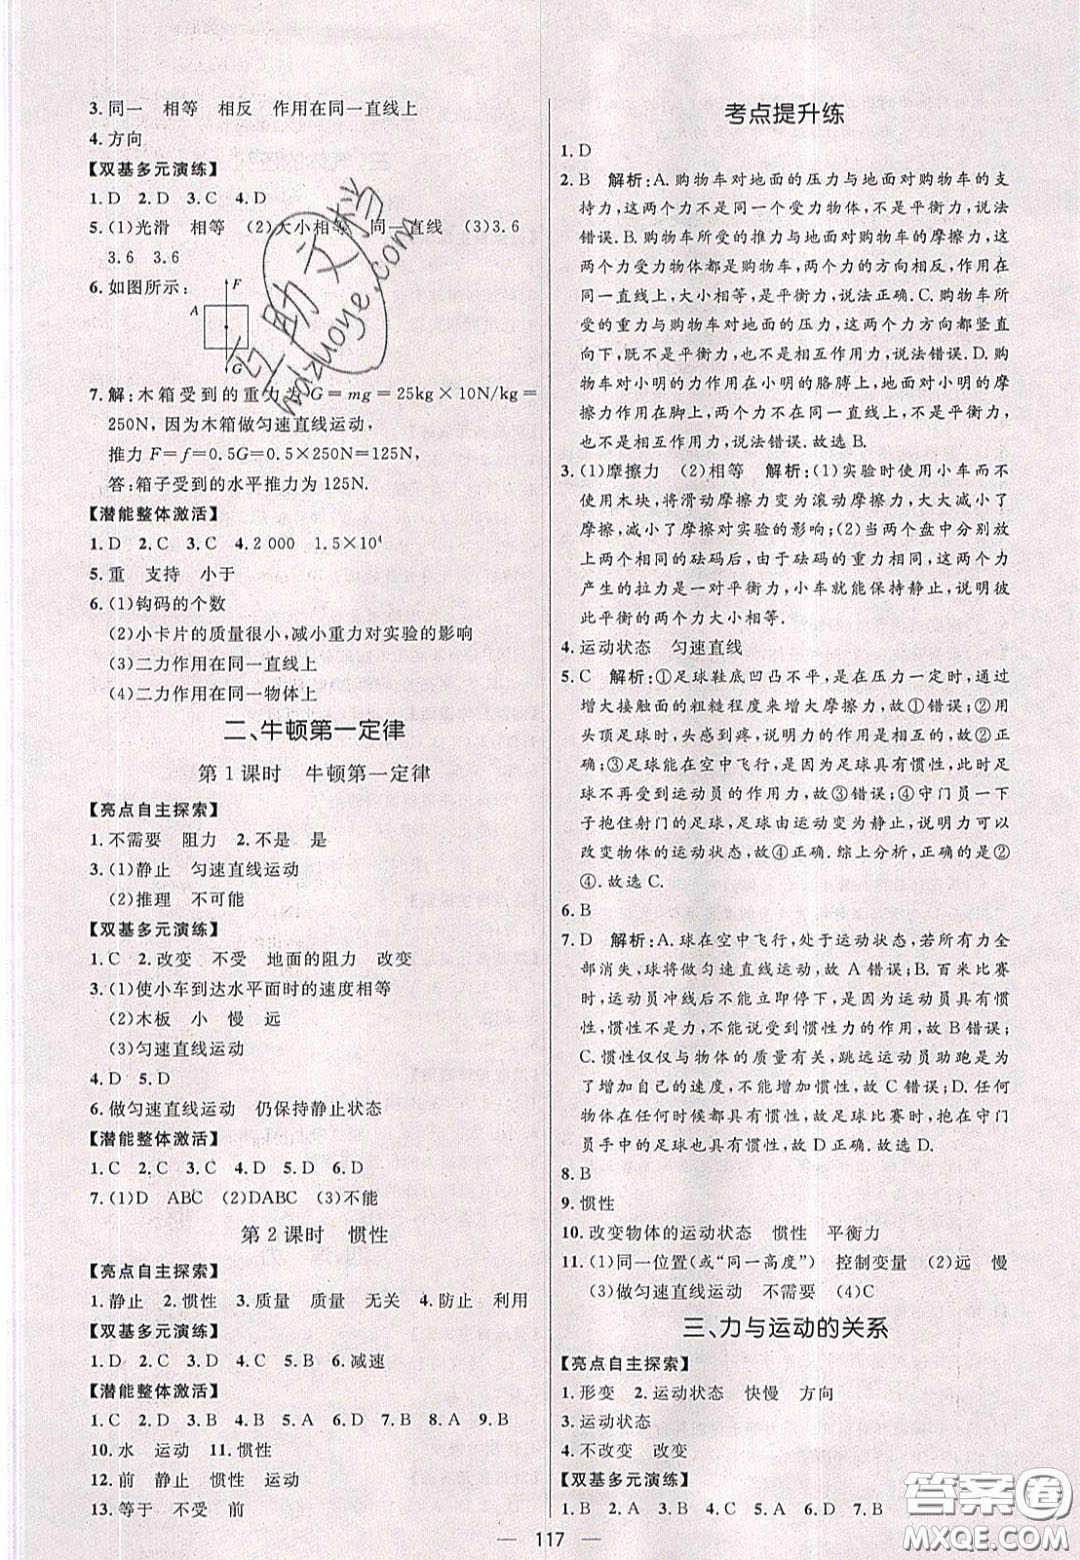 3. 同一　相等　相反　作用在同一直线上
4. 方向
【双基多元演练】
1. D　2. D　3. C　4. D
5. (1)光滑　相等　(2)大小相等　同一直线　(3)3.6
3.6　3.6
6. 如图所示：
F
A
G
7. 解：木箱受到的重力为G＝mg＝25kg×10N/kg＝
250N，因为木箱做匀速直线运动，
推力F＝f＝0.5G＝0.5×250N＝125N，
答：箱子受到的水平推力为125N.
【潜能整体激活】
1. D　2. C　3. C　4. 2 000　1.5×10⁴
5. 重　支持　小于
6. (1)钩码的个数
(2)小卡片的质量很小，减小重力对实验的影响
(3)二力作用在同一直线上
(4)二力作用在同一物体上
二、牛顿第一定律
第1课时　牛顿第一定律
【亮点自主探索】
1. 不需要　阻力　2. 不是　是
3. (1)静止　匀速直线运动
(2)推理　不可能
【双基多元演练】
1. C　2. 改变　不受　地面的阻力　改变
3. (1)使小车到达水平面时的速度相等
(2)木板　小　慢　远
(3)匀速直线运动
4. D　5. D
6. 做匀速直线运动　仍保持静止状态
【潜能整体激活】
1. C　2. C　3. C　4. D　5. D　6. D
7. (1)D　ABC　(2)DABC　(3)不能
第2课时　惯性
【亮点自主探索】
1. 静止　2. 惯性　3. 质量　质量　无关　4. 防止　利用
【双基多元演练】
1. D　2. D　3. B　4. D　5. D　6. 减速
【潜能整体激活】
1. C　2. C　3. B　4. B　5. B　6. B　7. B　8. A　9. B
10. 水　运动　11. 惯性
12. 前　静止　惯性　运动
13. 等于　不受　前
考点提升练
1. D
2. B　解析：A. 购物车对地面的压力与地面对购物车的支
持力，这两个力不是同一个受力物体，不是平衡力，说法
错误. B. 购物车所受的推力与地面对购物车的摩擦力，这
两个力受力物体都是购物车，两个力的方向相反，作用在
同一直线上，大小相等，是平衡力，说法正确. C. 购物车所受
的重力与购物车对地面的压力，这两个力方向都是竖直
向下，既不是平衡力，也不是相互作用力，说法错误. D. 购
物车对小明的力作用在小明的胳膊上，地面对小明的摩
擦力作用在脚上，两个力大小不等，不在一条直线上，不
是平衡力，也不是相互作用力，说法错误. 故选B.
3. (1)摩擦力　(2)相等　解析：(1)实验时使用小车而不
使用木块，将滑动摩擦力变为滚动摩擦力，大大减小了
摩擦，减小了摩擦对实验的影响；(2)当两个盘中分别放
上两个相同的砝码后，由于砝码的重力相同，这两个力
产生的拉力是一对平衡力，小车就能保持静止，说明彼
此平衡的两个力大小相等.
4. 运动状态　匀速直线
5. C　解析：①足球鞋底凹凸不平，是在压力一定时，通过
增大接触面的粗糙程度来增大摩擦力，故①错误；②用
头顶足球时，头感到疼，说明力的作用是相互的，故②正
确；③足球能在空中飞行，是因为足球具有惯性，此时足
球不再受到运动员的作用力，故③错误；④守门员一下
子抱住射门的足球，足球由运动变为静止，说明力可以
改变物体的运动状态，故④正确. 综上分析，正确的是②
④. 故选C.
6. B
7. D　解析：A. 球在空中飞行，处于运动状态，若所有外力全
部消失，球将做匀速直线运动，故A错误；B. 百米比赛
时，运动员冲线后不能立即停下，是因为运动员具有惯
性，惯性不是力，不能说受到惯性力的作用，故B错误；
C. 惯性仅仅与物体的质量有关，跳远运动员助跑是为
了增加自己的速度，不能增加惯性，故C错误；D. 任何
物体在任何时候都具有惯性，故足球比赛时，抱在守门
员手中的足球也具有惯性，故D正确. 故选D.
8. B
9. 惯性
10. 改变物体的运动状态　惯性　平衡力
11. (1)同一位置(或“同一高度”)　控制变量　(2)远　慢
(3)做匀速直线运动　不需要　(4)C
三、力与运动的关系
【亮点自主探索】
1. 形变　2. 运动状态　快慢　方向
3. 运动状态
4. 不改变　改变
【双基多元演练】
1. B　2. A　3. B　4. B　5. D　6. A　7. B
117
答案圈
MXQE.COM